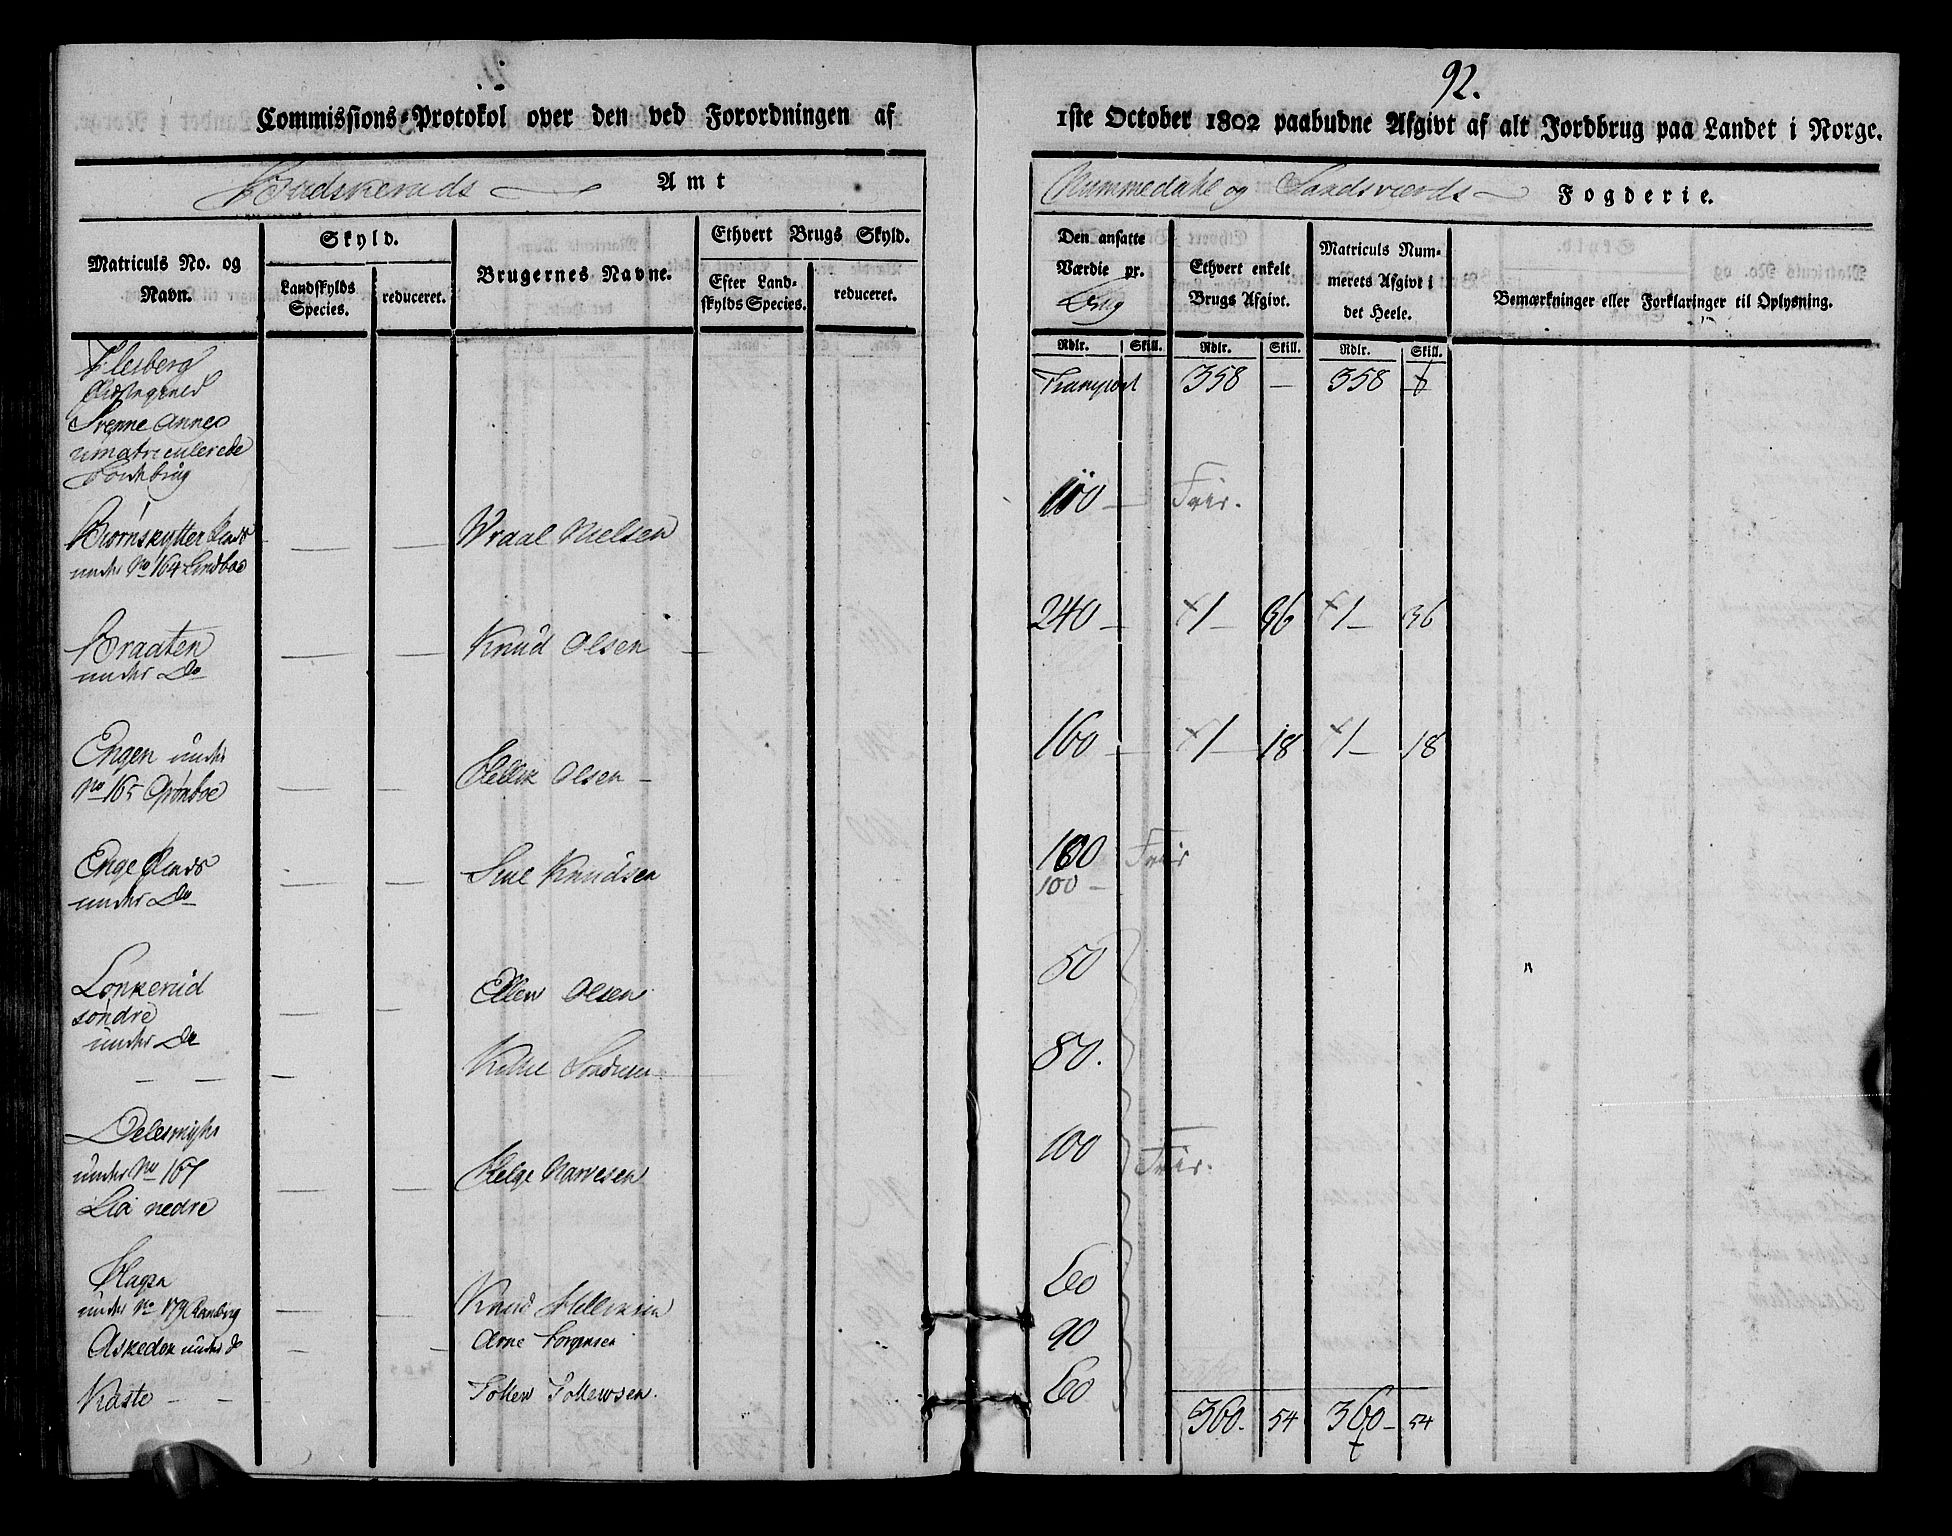 92.
Commissions-Protokol over den ved Forordningen af
1ste October 1802 paabudne Afgivt af alt Jordbrug paa Landet i Norge.
Budskeruds Amt
Nummedahl og Sandsværds Fogderie.
Matriculs No. og Navn.
Skyld.
Landskylds Species.
reduceret.
Brugernes Navne.
Ethvert Brugs Skyld.
Efter Landskylds Species.
reduceret.
Den ansatte Værdie pr. Brug
Ethvert enkelt Brugs Afgivt.
Matriculs Nummerets Afgivt i det Heele.
Bemærkninger eller Forklaringer til Oplysning.
Rdlr. Skill. Rdlr. Skill. Rdlr. Skill.
Flesberg
Transport 358 — 358
Svenne Annex
umatriculerede
Jordbrug
Biørnskytter Plads
under No 164 Lindboe
— — Wraal Nielsen 100 — Frir.
Braaten
under Do
— — Knud Olsen — 240 — 1 — 36 1 — 36
Engen under
No 165 Grønboe
— — Hellik Olsen — 160 — 1 — 18 1 — 18
Enge Plads
under Do
— — Knudsen 100 Frir
100 —
Lonkerud
søndre
under Do
— — Ellen Olsen 50
— — — 80.
under No 167
Lia nedre
— — Helge Narvesen 100 Frir.
Hagen
under No 179 Ramberg
— — Knud 60
Askedok under do
— — Arne Torgensen 90
Kaste — — Tollew Tollewsen. 60
360. 54 360 — 54